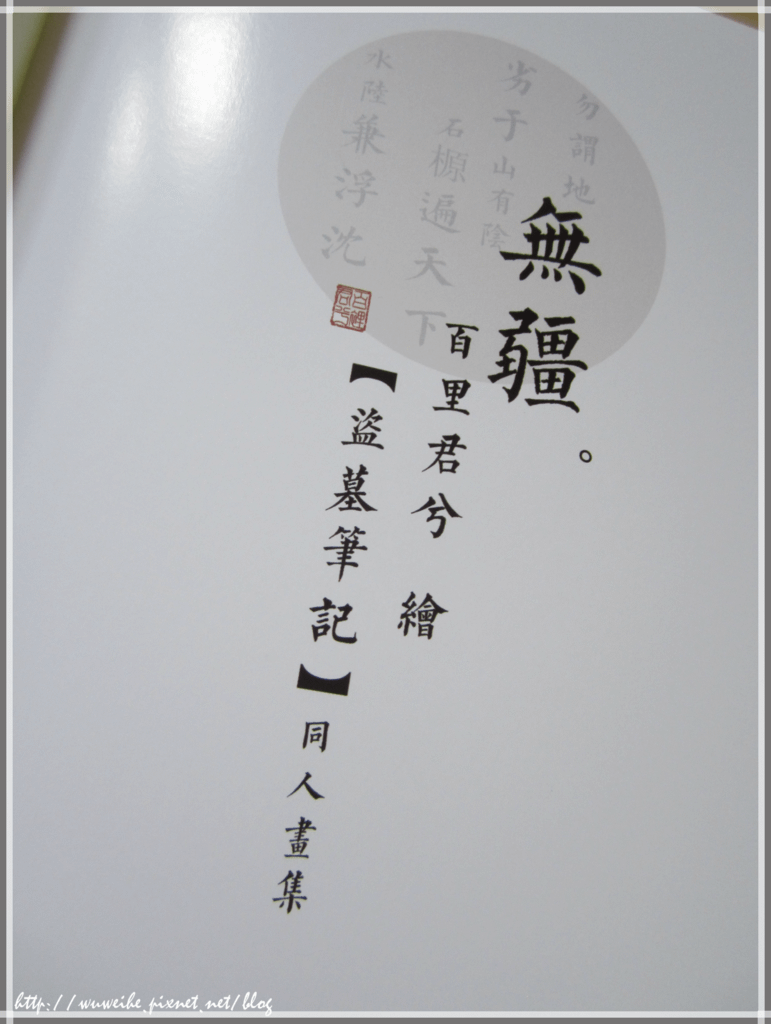 無疆。
百里君兮 繪
【盜墓筆記】同人畫集
勿謂地
劣于山有陰
石榞遍天下
水陸兼浮沈
http://wuweihe.pixnet.net/blog